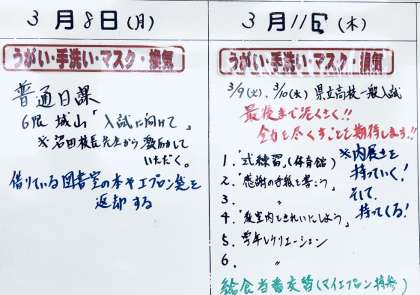 3月8日(月)
うがい・手洗い・マスク・換気
普通日課
6限 城山「入試に向けて」
※沼田校長先生から激励して
いただく。
借りている図書室の本やエプロン袋を
返却する
3月11日(木)
うがい・手洗い・マスク・換気
3/9(火)、3/10(水) 県立高校一般入試
最後まで泥くさく!!
全力を尽くすことを期待します!!
1. 式練習(体育館)
2. 「感謝の手紙を書こう」
3. 〃
4. 「教室内をきれいにしよう」
5. 学年レクリエーション
6. 〃
※内履きを
持っていく!
そして
持ってくる!
給食当番交替(マイエプロン持参)